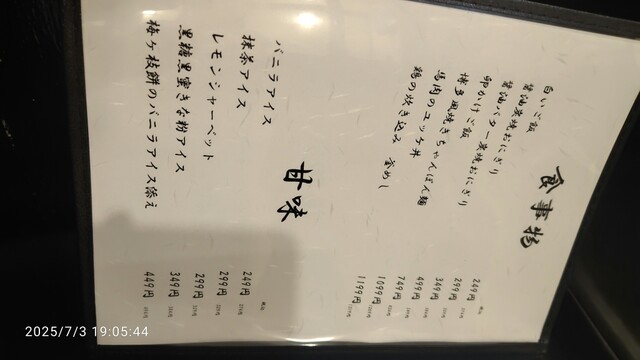 食事物
白いご飯 249円
醤油炭焼おにぎり 299円
醤油バター炭焼おにぎり 349円
卵かけご飯 499円
博多風焼きちゃんぽん麺 749円
馬肉のユッケ丼 1099円
鶏の炊き込み 釜めし 1199円
甘味
バニラアイス 249円
抹茶アイス 299円
レモンシャーベット 299円
黒糖黒蜜きな粉アイス 349円
梅ヶ枝餅のバニラアイス添え 449円
2025/7/3 19:05:44